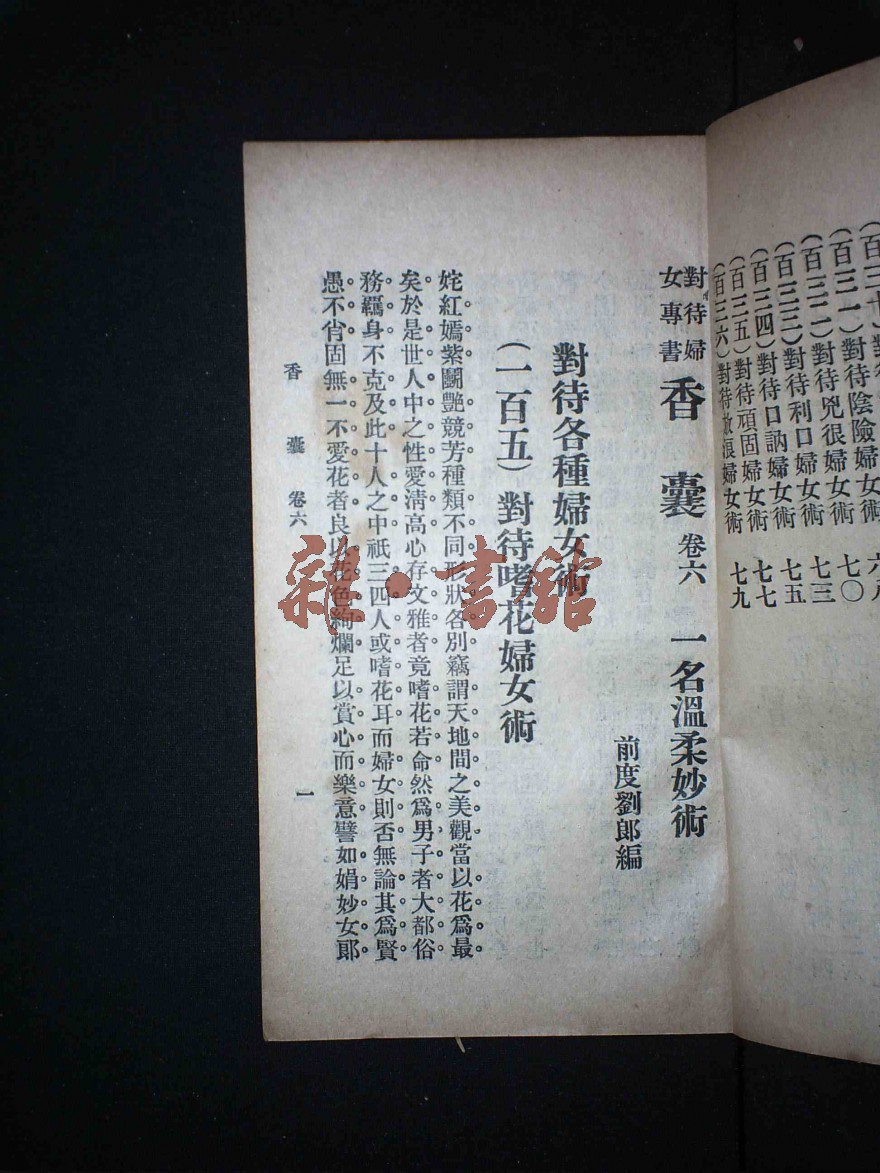 對待陰險婦女術
(百三一)對待兇很婦女術 七〇
(百三二)對待利口婦女術 七三
(百三三)對待口訥婦女術 七五
(百三四)對待頑固婦女術 七七
(百三五)對待放浪婦女術 七九
(百三六)
對待婦女專書 香囊 卷六 一名溫柔妙術
前度劉郎編
對待各種婦女術
(一百五)對待嗜花婦女術
姹紅嫣紫鬬艷競芳種類不同形狀各別竊謂天地間之美觀當以花爲最
矣於是世人中之性愛淸高心存文雅者竟嗜花若命然爲男子者大都俗
務羈身不克及此十人之中祇三四人或嗜花耳而婦女則否無論其爲賢
愚不肖固無一不愛花者良以花色絢爛足以賞心而樂意譬如娟妙女郞
香囊 卷六 一
雜·書館